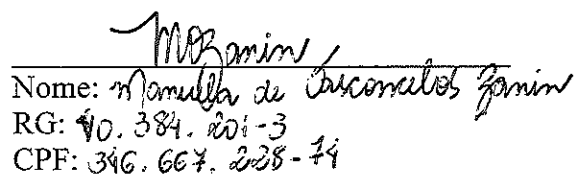 MOZanin
Nome: Manuella de Vasconcelos Zanin
RG: 40.384.201-3
CPF: 346.667.228-74